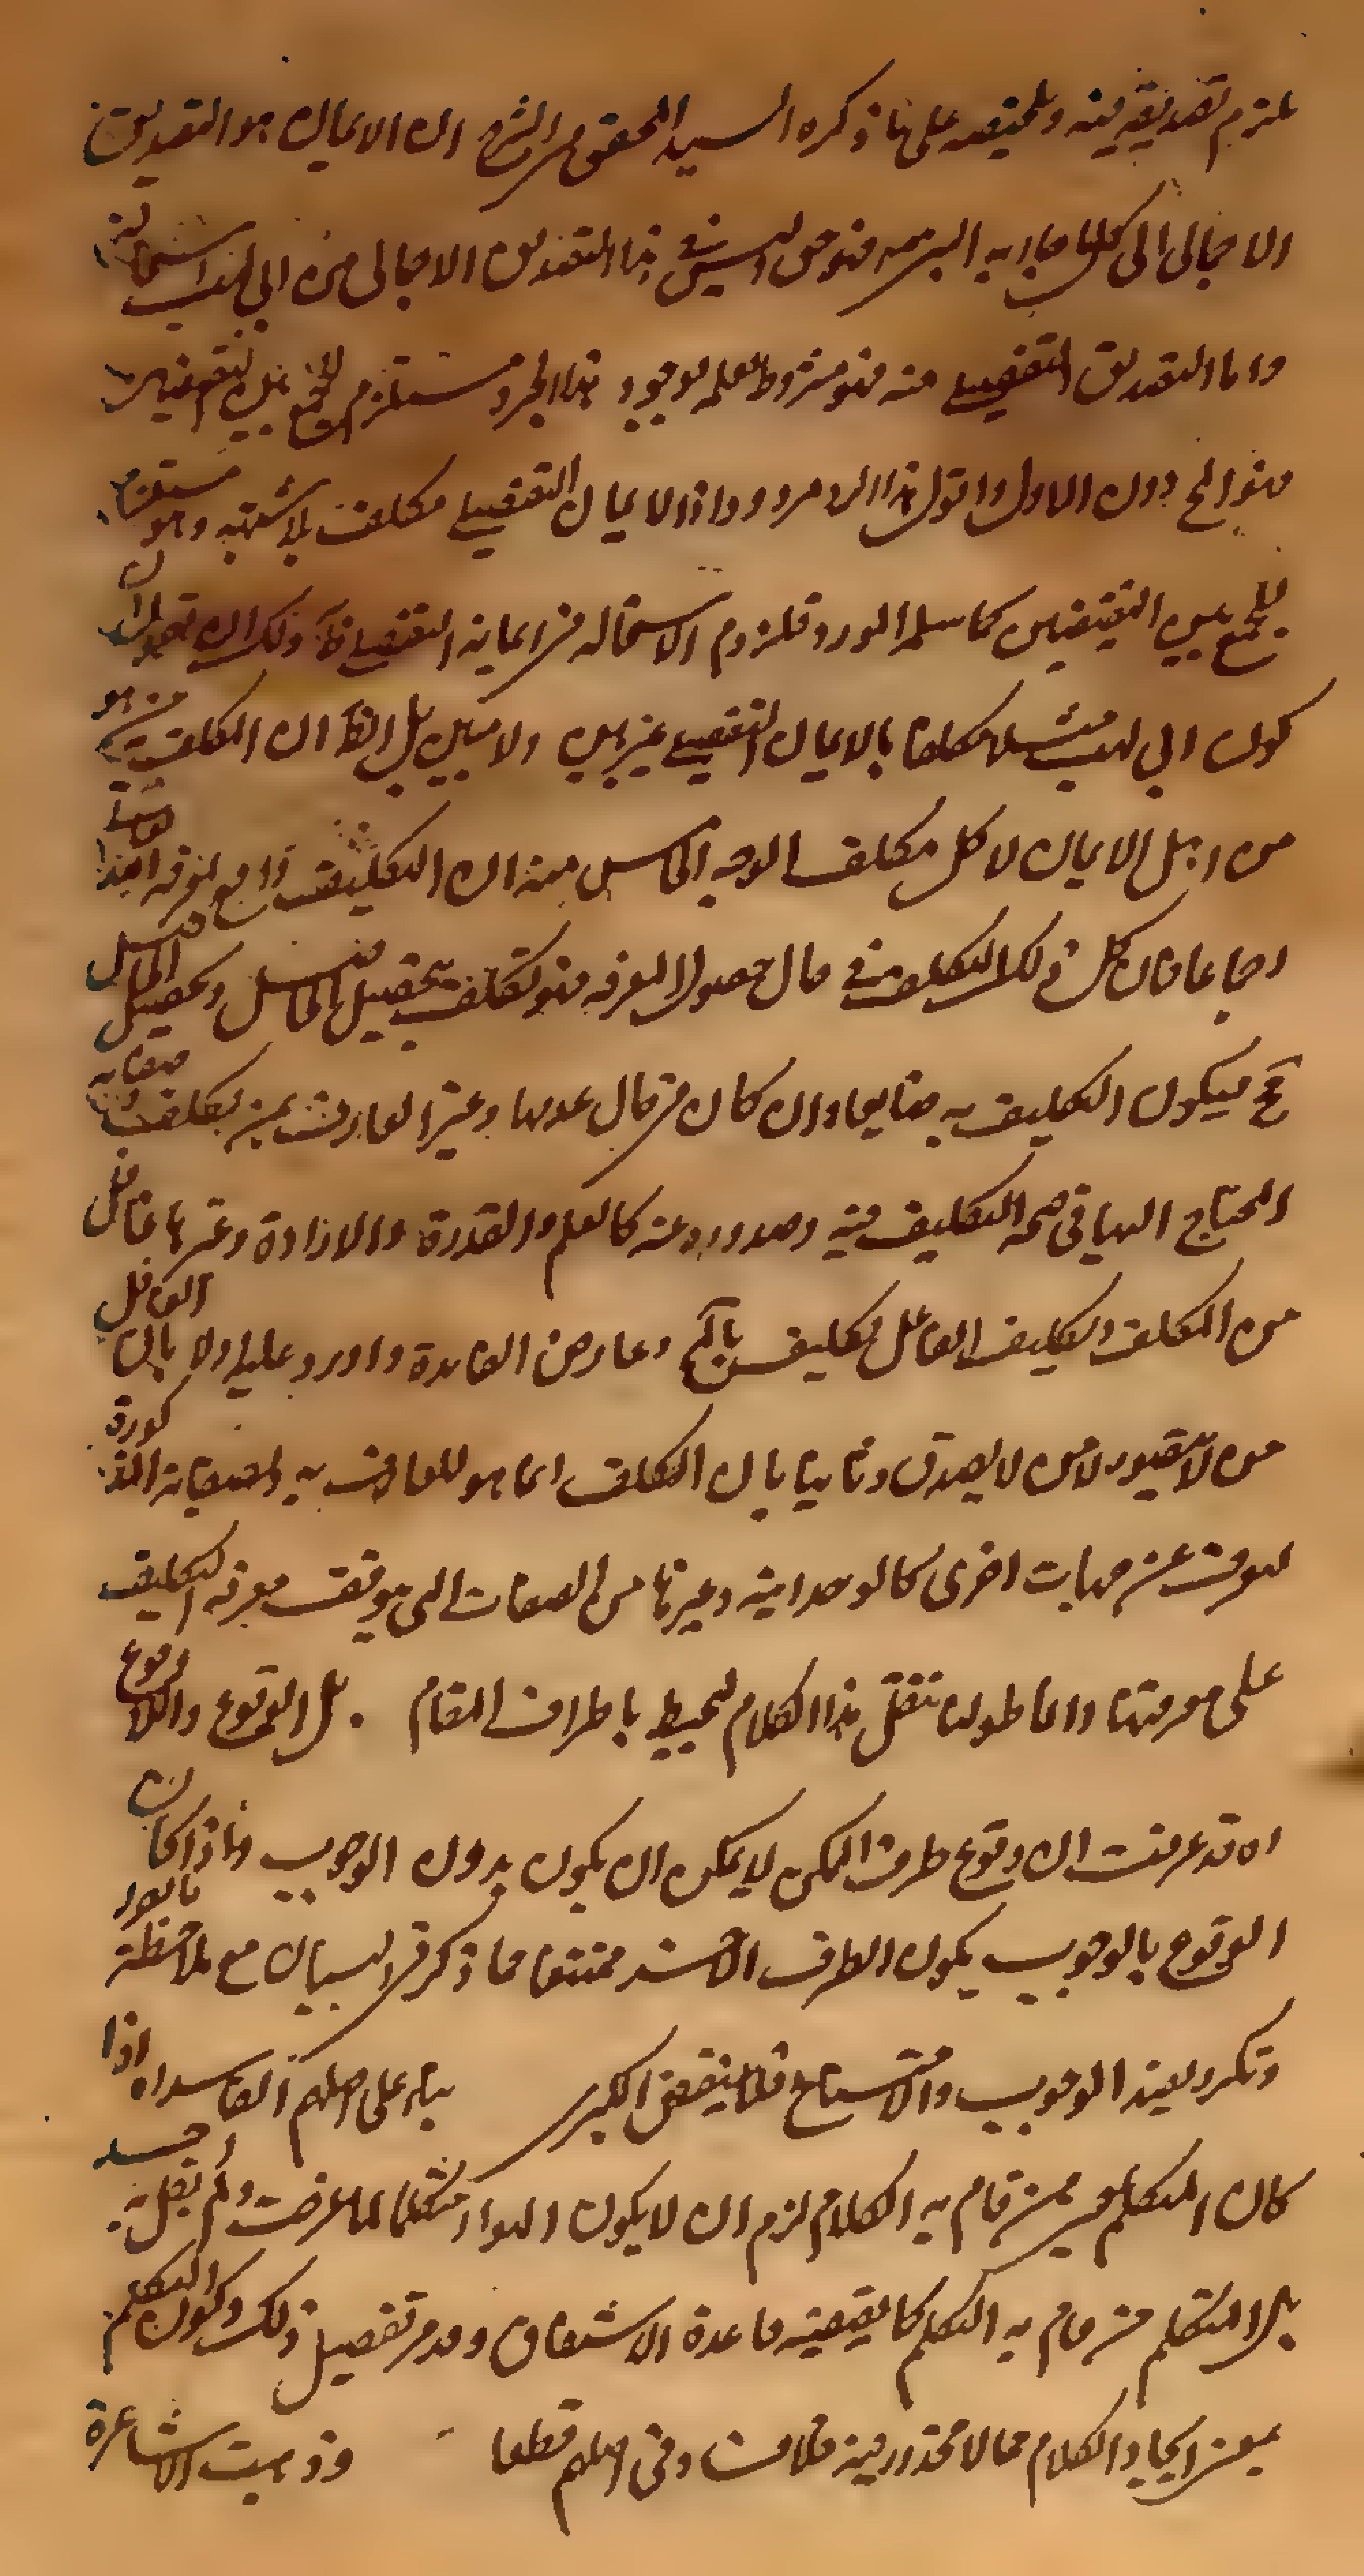 يلزم تصديقه فيه وتحقيقه على ما ذكره السيد المحقق في الشرح ان الايمان هو التصديق
الاجمالي الى كلما جاء به النبي فهو حق وليس في هذا التصديق الاجمالي من ابي لهب استحالة
واما التصديق التفصيلي منه فهو مشروط بعلمه بوجود هذا الخبر ومستلزم للجمع بين النقيضين
فهو المح دون الاول واقول هذا المردود اذ الايمان التفصيلي مكلف بلا شبهة وهو مستلزم
للجمع بين النقيضين كما سلمه المورد فلزوم الاستحالة في ايمانه التفصيلي ظ ولك ان تقول ان
كون ابي لهب مثلا مكلفا بالايمان التفصيلي غير بين ولا مبين بل الظ ان المكلف به من هو
من اهل الايمان لا كل مكلف الوجه الخامس منه ان التكليف واقع بمعرفة الله تعالى
اجماعا فان كان ذلك التكليف في حال حصول المعرفة فهو تكليف بتحصيل الحاصل وتحصيل الحاصل
مح فيكون التكليف به ضايعا وان كان في حال عدمها وغير العارف بمن يكلفه وصفاته
المحتاج اليها في صحة التكليف منه وصدوره عنه كالعلم والقدرة والارادة وغيرها غافل
من المكلف وتكليف الغافل تكليف بالمح وعارض الفايدة واورد عليه اولا بان الغافل
من لا يتصور لا من لا يصدق وثانيا بان التكلف انما هو للعارف به ولصفاته المذكورة
ليعرف عن جهات اخرى كالوحدانية وغيرها من الصفات التي يتوقف معرفة التكليف
على معرفتها وانما طولنا بنقل هذا الكلام ليحيط باطراف المقام . بل الوقوع واللاوقوع
اه قد عرفت ان وقوع طرف الممكن لا يمكن ان يكون بدون الوجوب واذا كان
الوقوع بالوجوب يكون الطرف الاخر ممتنعا فما ذكر في البيان مع ملاحظة
وتكرر بعينه الوجوب والامتناع فلا ينتقض الكبرى بناء على اصلهم الفاسد اه اذا
كان المتكلم من قام به الكلام لزم ان لا يكون الهواء متكلما لما عرفت ولم يقل به احد
بل المتكلم من قام به التكلم كما يقتضيه قاعدة الاشتقاق وقد مر تفصيل ذلك وكون التكلم
بمعنى ايجاد الكلام مما لا محذور فيه فلا فساد في اصلهم قطعا وذهبت الاشاعرة